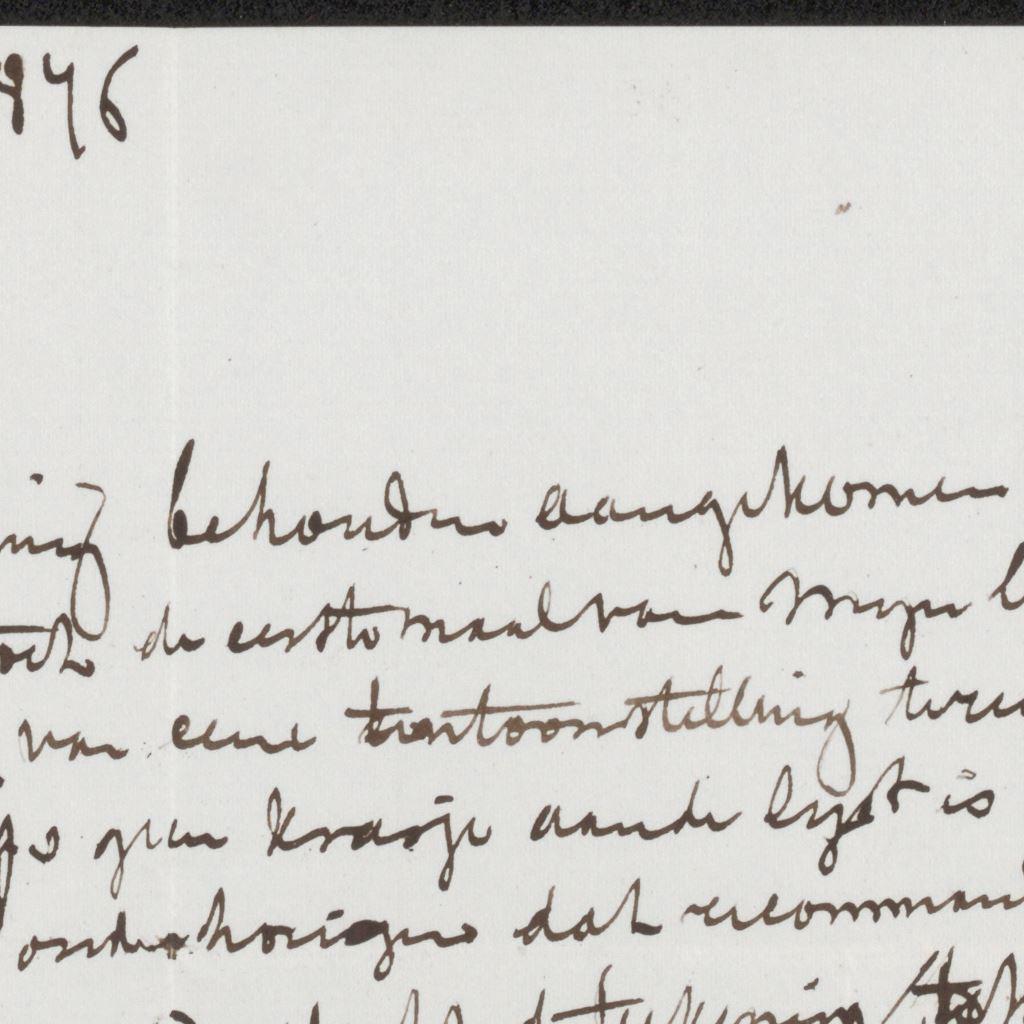 1876
ning behouden aangekomen
toch de eerste maal van mijn l
van eene tentoonstelling teru
geen krasje aan de lijst is
onderhorigen dat recomman
teekening